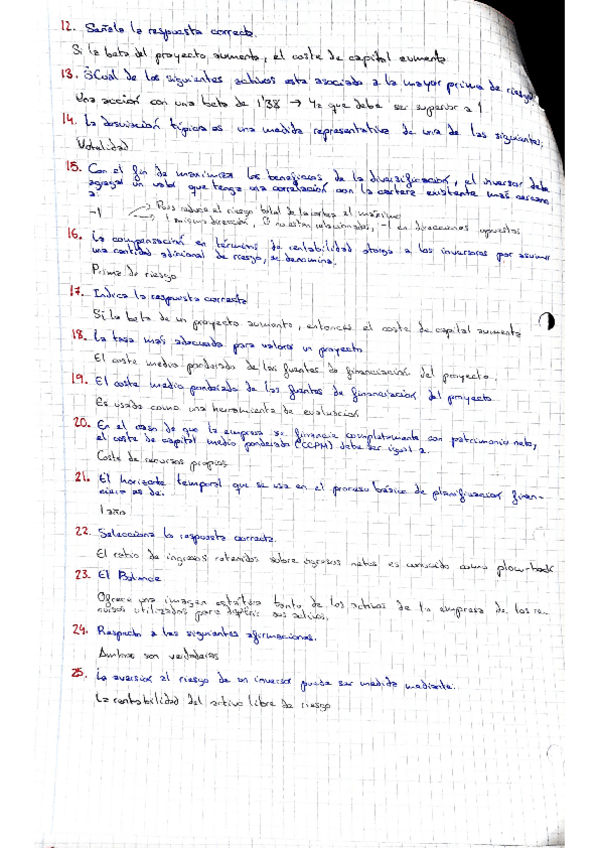 12. Señale la respuesta correcta.
Si la beta del proyecto aumenta, el coste de capital aumenta.
13. ¿Cuál de los siguientes activos esta asociado a la mayor prima de riesgo?
Una acción con una beta de 1'38 → Ya que debe ser superior a 1
14. La desviación típica es una medida representativa de una de las siguientes:
Volatilidad
15. Con el fin de maximizar los beneficios de la diversificación, el inversor debe
agregar un valor que tenga una correlación con la cartera existente más cercana
a:
-1 → Pues reduce el riesgo total de la cartera al máximo
→ 1 misma dirección, 0 no están relacionados, -1 en direcciones opuestas
16. La compensación en términos de rentabilidad otorga a los inversores por asumir
una cantidad adicional de riesgo, se denomina:
Prima de riesgo
17. Indica la respuesta correcta
Si la beta de un proyecto aumenta, entonces el coste de capital aumenta
18. La tasa más adecuada para valorar un proyecto
El coste medio ponderado de las fuentes de financiación del proyecto.
19. El coste medio ponderado de las fuentes de financiación del proyecto
Es usado como una herramienta de evaluación
20. En el caso de que la empresa se financie completamente con patrimonio neto,
el coste de capital medio ponderado (CCPM) debe ser igual a:
Coste de recursos propios
21. El horizonte temporal que se usa en el proceso básico de planificación finan-
ciera es de:
1 año
22. Selecciona la respuesta correcta.
El ratio de ingresos retenidos sobre ingresos netos es conocido como plow-back
23. El Balance
Ofrece una imagen estática tanto de los activos de la empresa de los re-
cursos utilizados para sus activos.
24. Respecto a las siguientes afirmaciones.
Ambas son verdaderas
25. La aversión al riesgo de un inversor puede ser medida mediante:
La rentabilidad del activo libre de riesgo